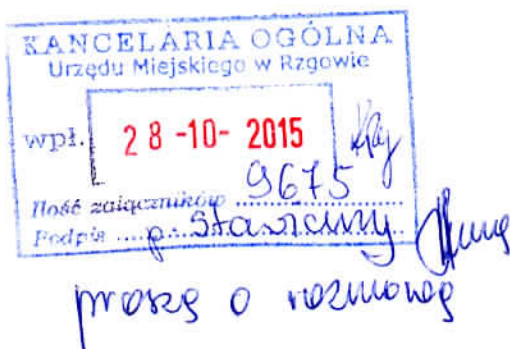 KANCELARIA OGÓLNA
Urzędu Miejskiego w Rzgowie
wpł. 28 -10- 2015
9675
Ilość załączników
Podpis p.
proszę o rozmowę